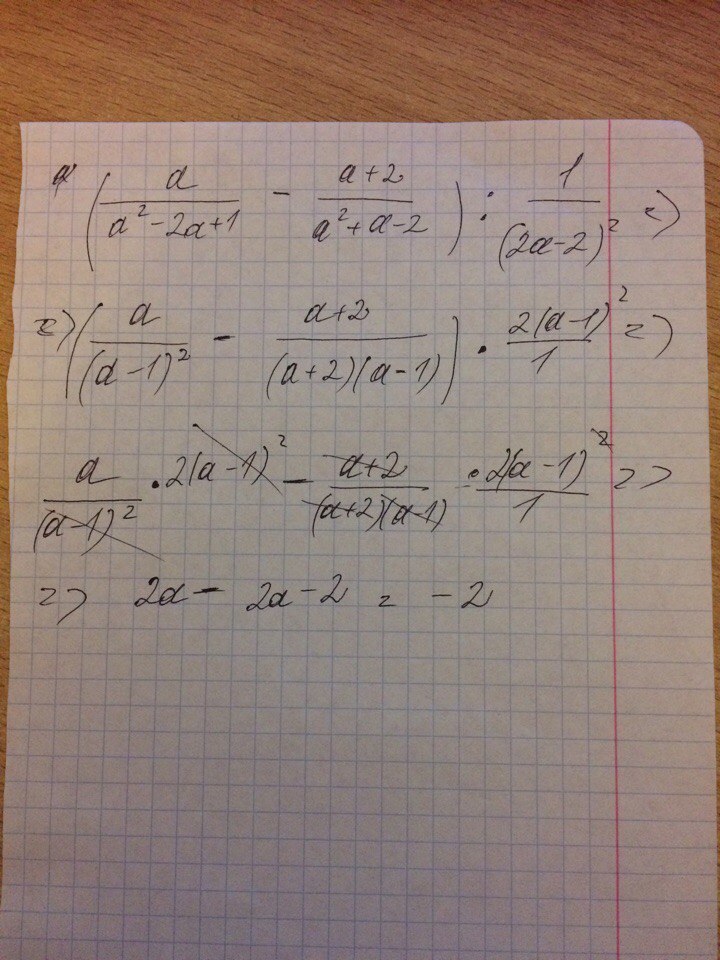 ( a/(a² - 2a + 1) - (a+2)/(a² + a - 2) ) : 1/(2a-2)² =>
=> ( a/(a-1)² - (a+2)/((a+2)(a-1)) ) · 2(a-1)²/1 =>
a/(a-1)² · 2(a-1)² - (a+2)/((a+2)(a-1)) · 2(a-1)²/1 =>
=> 2a - 2a - 2 = -2